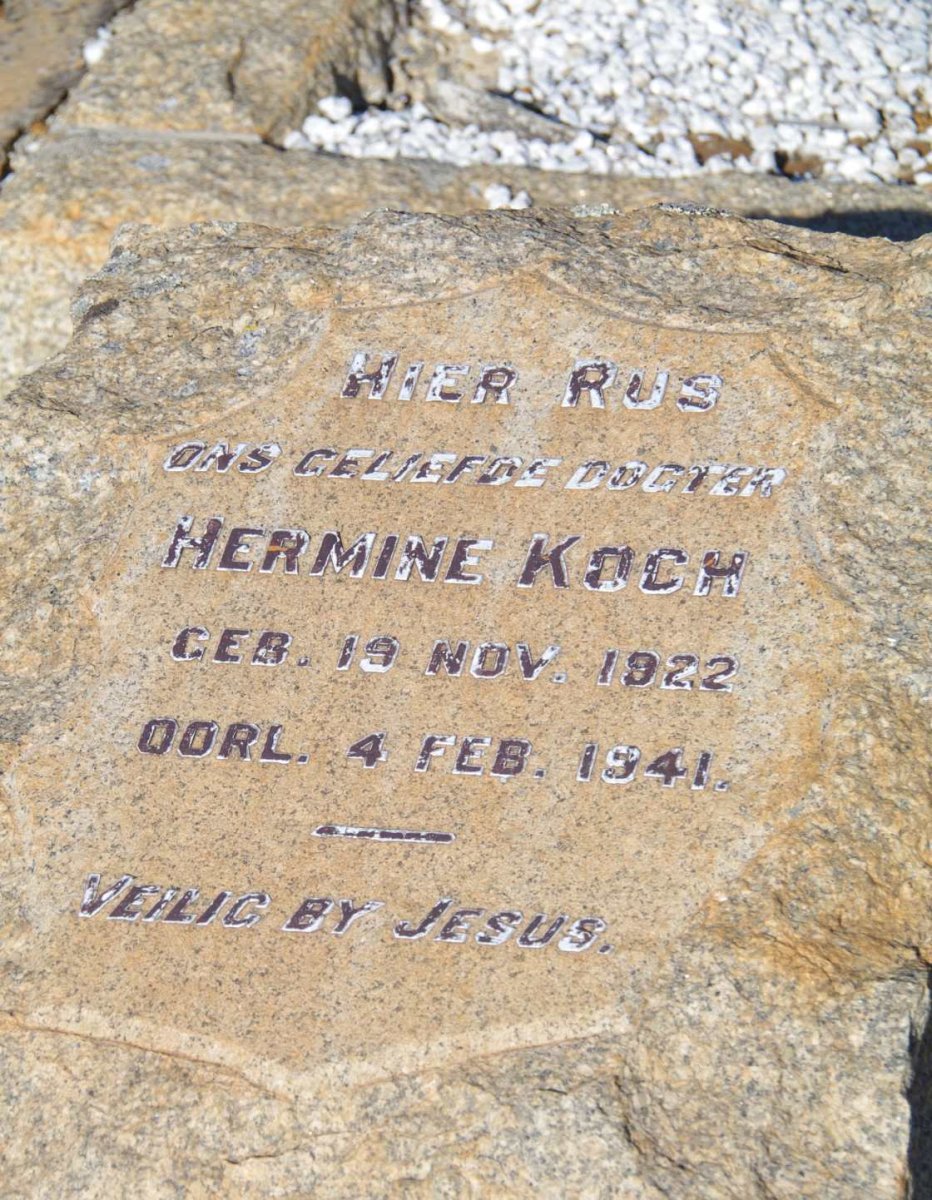 HIER RUS
ONS GELIEFDE DOGTER
HERMINE KOCH
GEB. 19 NOV. 1922
OORL. 4 FEB. 1941.
VEILIG BY JESUS.